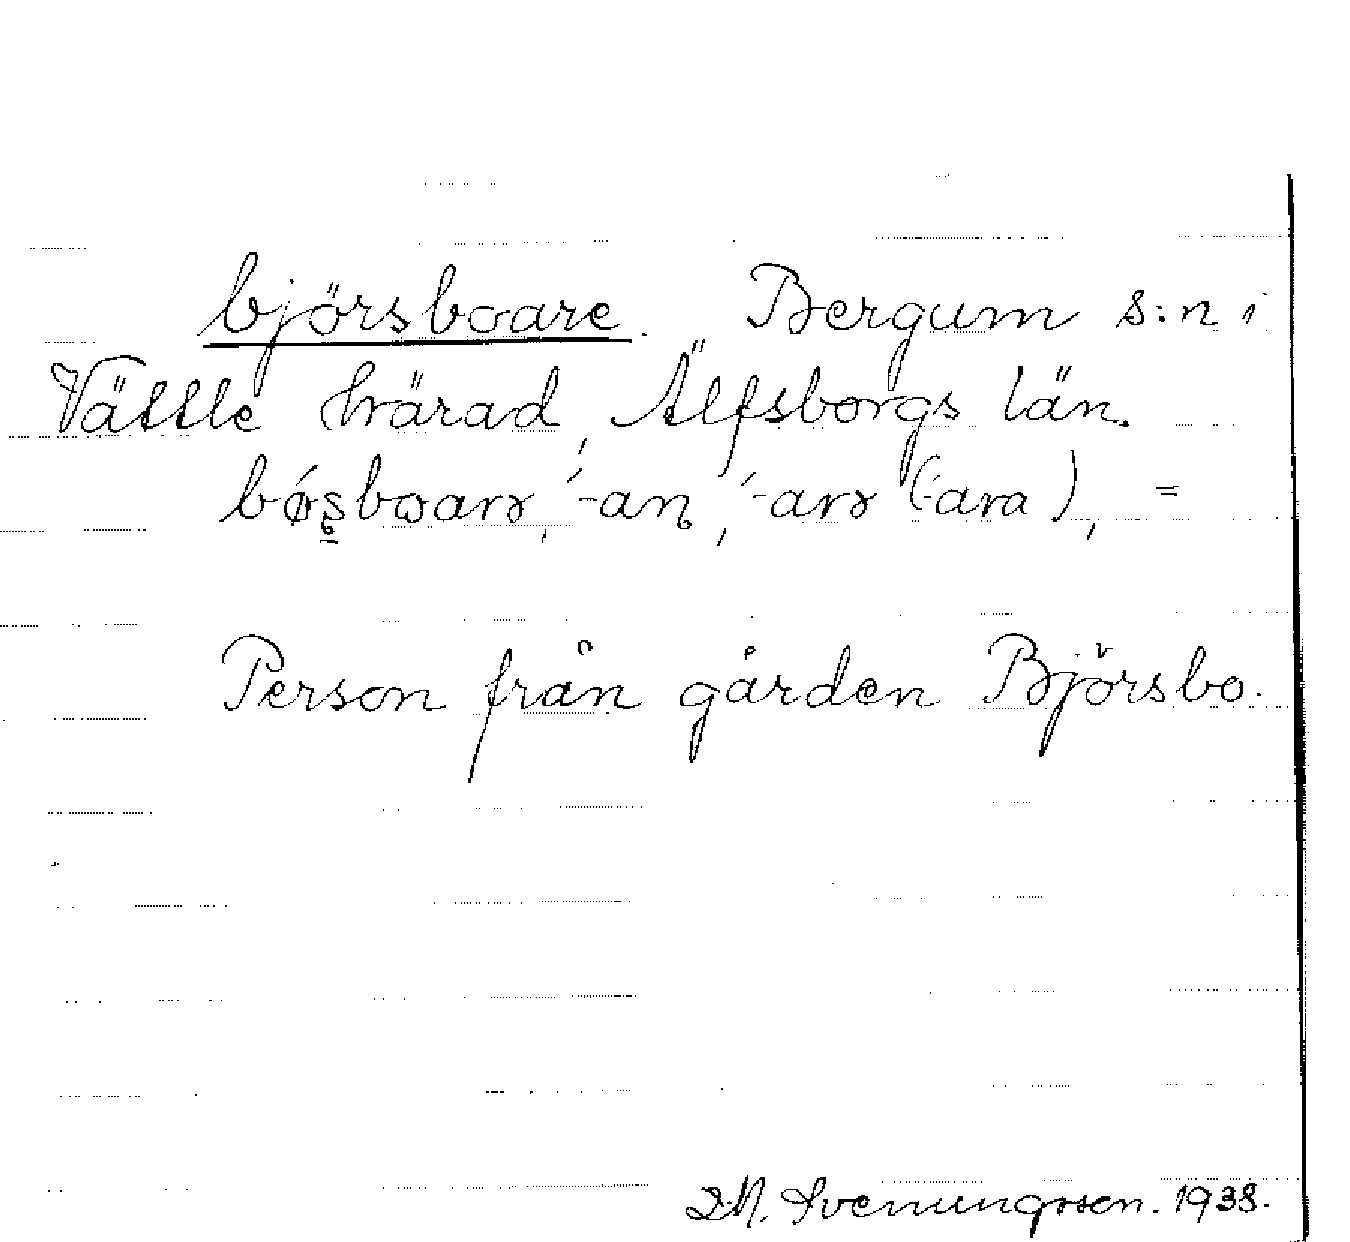 björsboare. Bergum s:n i
Vättle härad, Älfsborgs län.
bǿʂboarə, ´-an, ´-arə (-ara), =
Person från gården Björsbo.
Svenungsson. 1938.